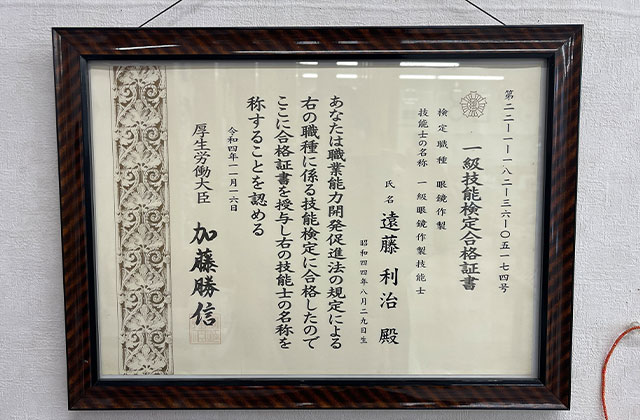 第二二一一一一八二一三六一〇五一七四号
一級技能検定合格証書
検定職種 眼鏡作製
技能士の名称 一級眼鏡作製技能士
氏名 遠藤利治 殿
昭和四四年八月二九日生
あなたは職業能力開発促進法の規定による
右の職種に係る技能検定に合格したので
ここに合格証書を授与し右の技能士の名称を
称することを認める
令和四年一一月一六日
厚生労働大臣 加藤勝信